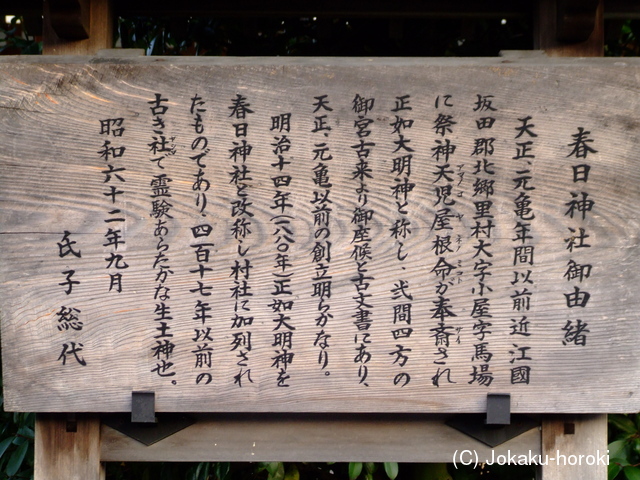 春日神社御由緒
天正、元亀年間以前近江國
坂田郡北郷里村大字小屋字馬場
に祭神天児屋根命が奉斎され
正如大明神と称し、弐間四方の
御宮古来より御座候と古文書にあり、
天正、元亀以前の創立明らかなり。
明治十四年(一八八〇年)正如大明神を
春日神社と改称し村社に加列され
たものであり、四百十七年以前の
古き社で霊験あらたかな生土神也。
昭和六十二年九月
氏子総代
(C) Jokaku-horoki